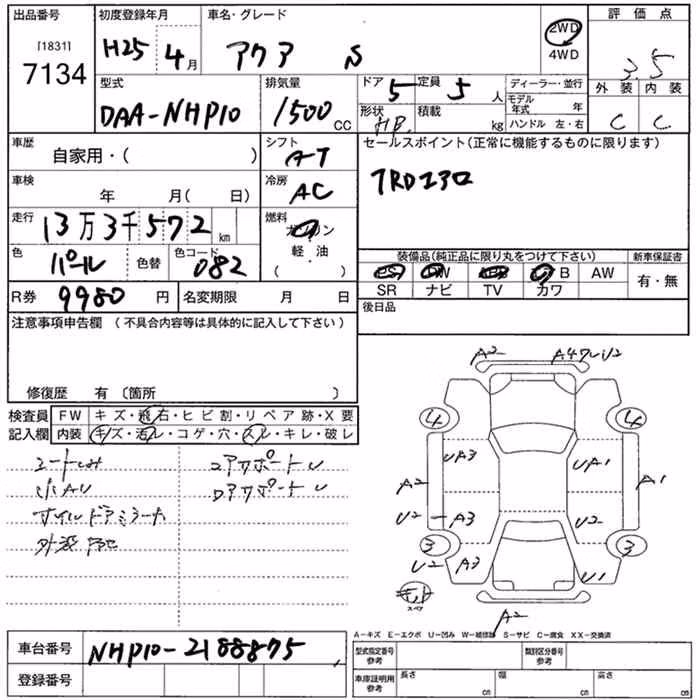 出品番号
[1831]
7134
初度登録年月
H25 4月
車名・グレード
アクア S
2WD
4WD
評価点
3.5
外装 内装
C C
型式
DAA-NHP10
排気量
1500 CC
ドア 5
定員 5 人
形状 HB
積載 kg
ディーラー・並行
モデル年式 年
ハンドル 左・右
車歴
自家用・( )
シフト
AT
セールスポイント(正常に機能するものに限ります)
TRDエアロ
車検
年 月(日)
冷房
AC
走行
13万3千572km
燃料
ガソリン
軽・油
( )
色 パール 色替 色コード 082
装備品(純正品に限り丸をつけて下さい) 新車保証書
PS PW AB AW
SR ナビ TV カワ 有・無
R券 9980円 名変期限 月 日
後日品
注意事項申告欄 (不具合内容等は具体的に記入して下さい)
修復歴 有 〔箇所 〕
検査員 FW キズ・飛石・ヒビ割・リペア跡・X要
記入欄 内装 キズ・汚レ・コゲ・穴・スレ・キレ・破レ
シートしみ
コアサポートU
ホイルドアミラーA
A2 A4フレU2
4 4
UA3 UA1
A2 A1
U2 A3 U2
3 3
U2 A3 U1
スペア
A2
A-キズ E-エクボ U-凹み W-補修跡 S-サビ C-腐食 XX-交換済
車台番号 NHP10-2188875
登録番号
型式指定番号 参考 類別区分番号 参考
車庫証明用 参考 長さ cm 幅 cm 高さ cm